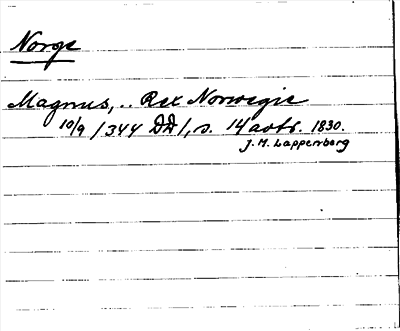 Norge
Magnus, .. Rex Norwegie
10/9 1344 DD/, s. 14 aots. 1830.
J. M. Lappenberg